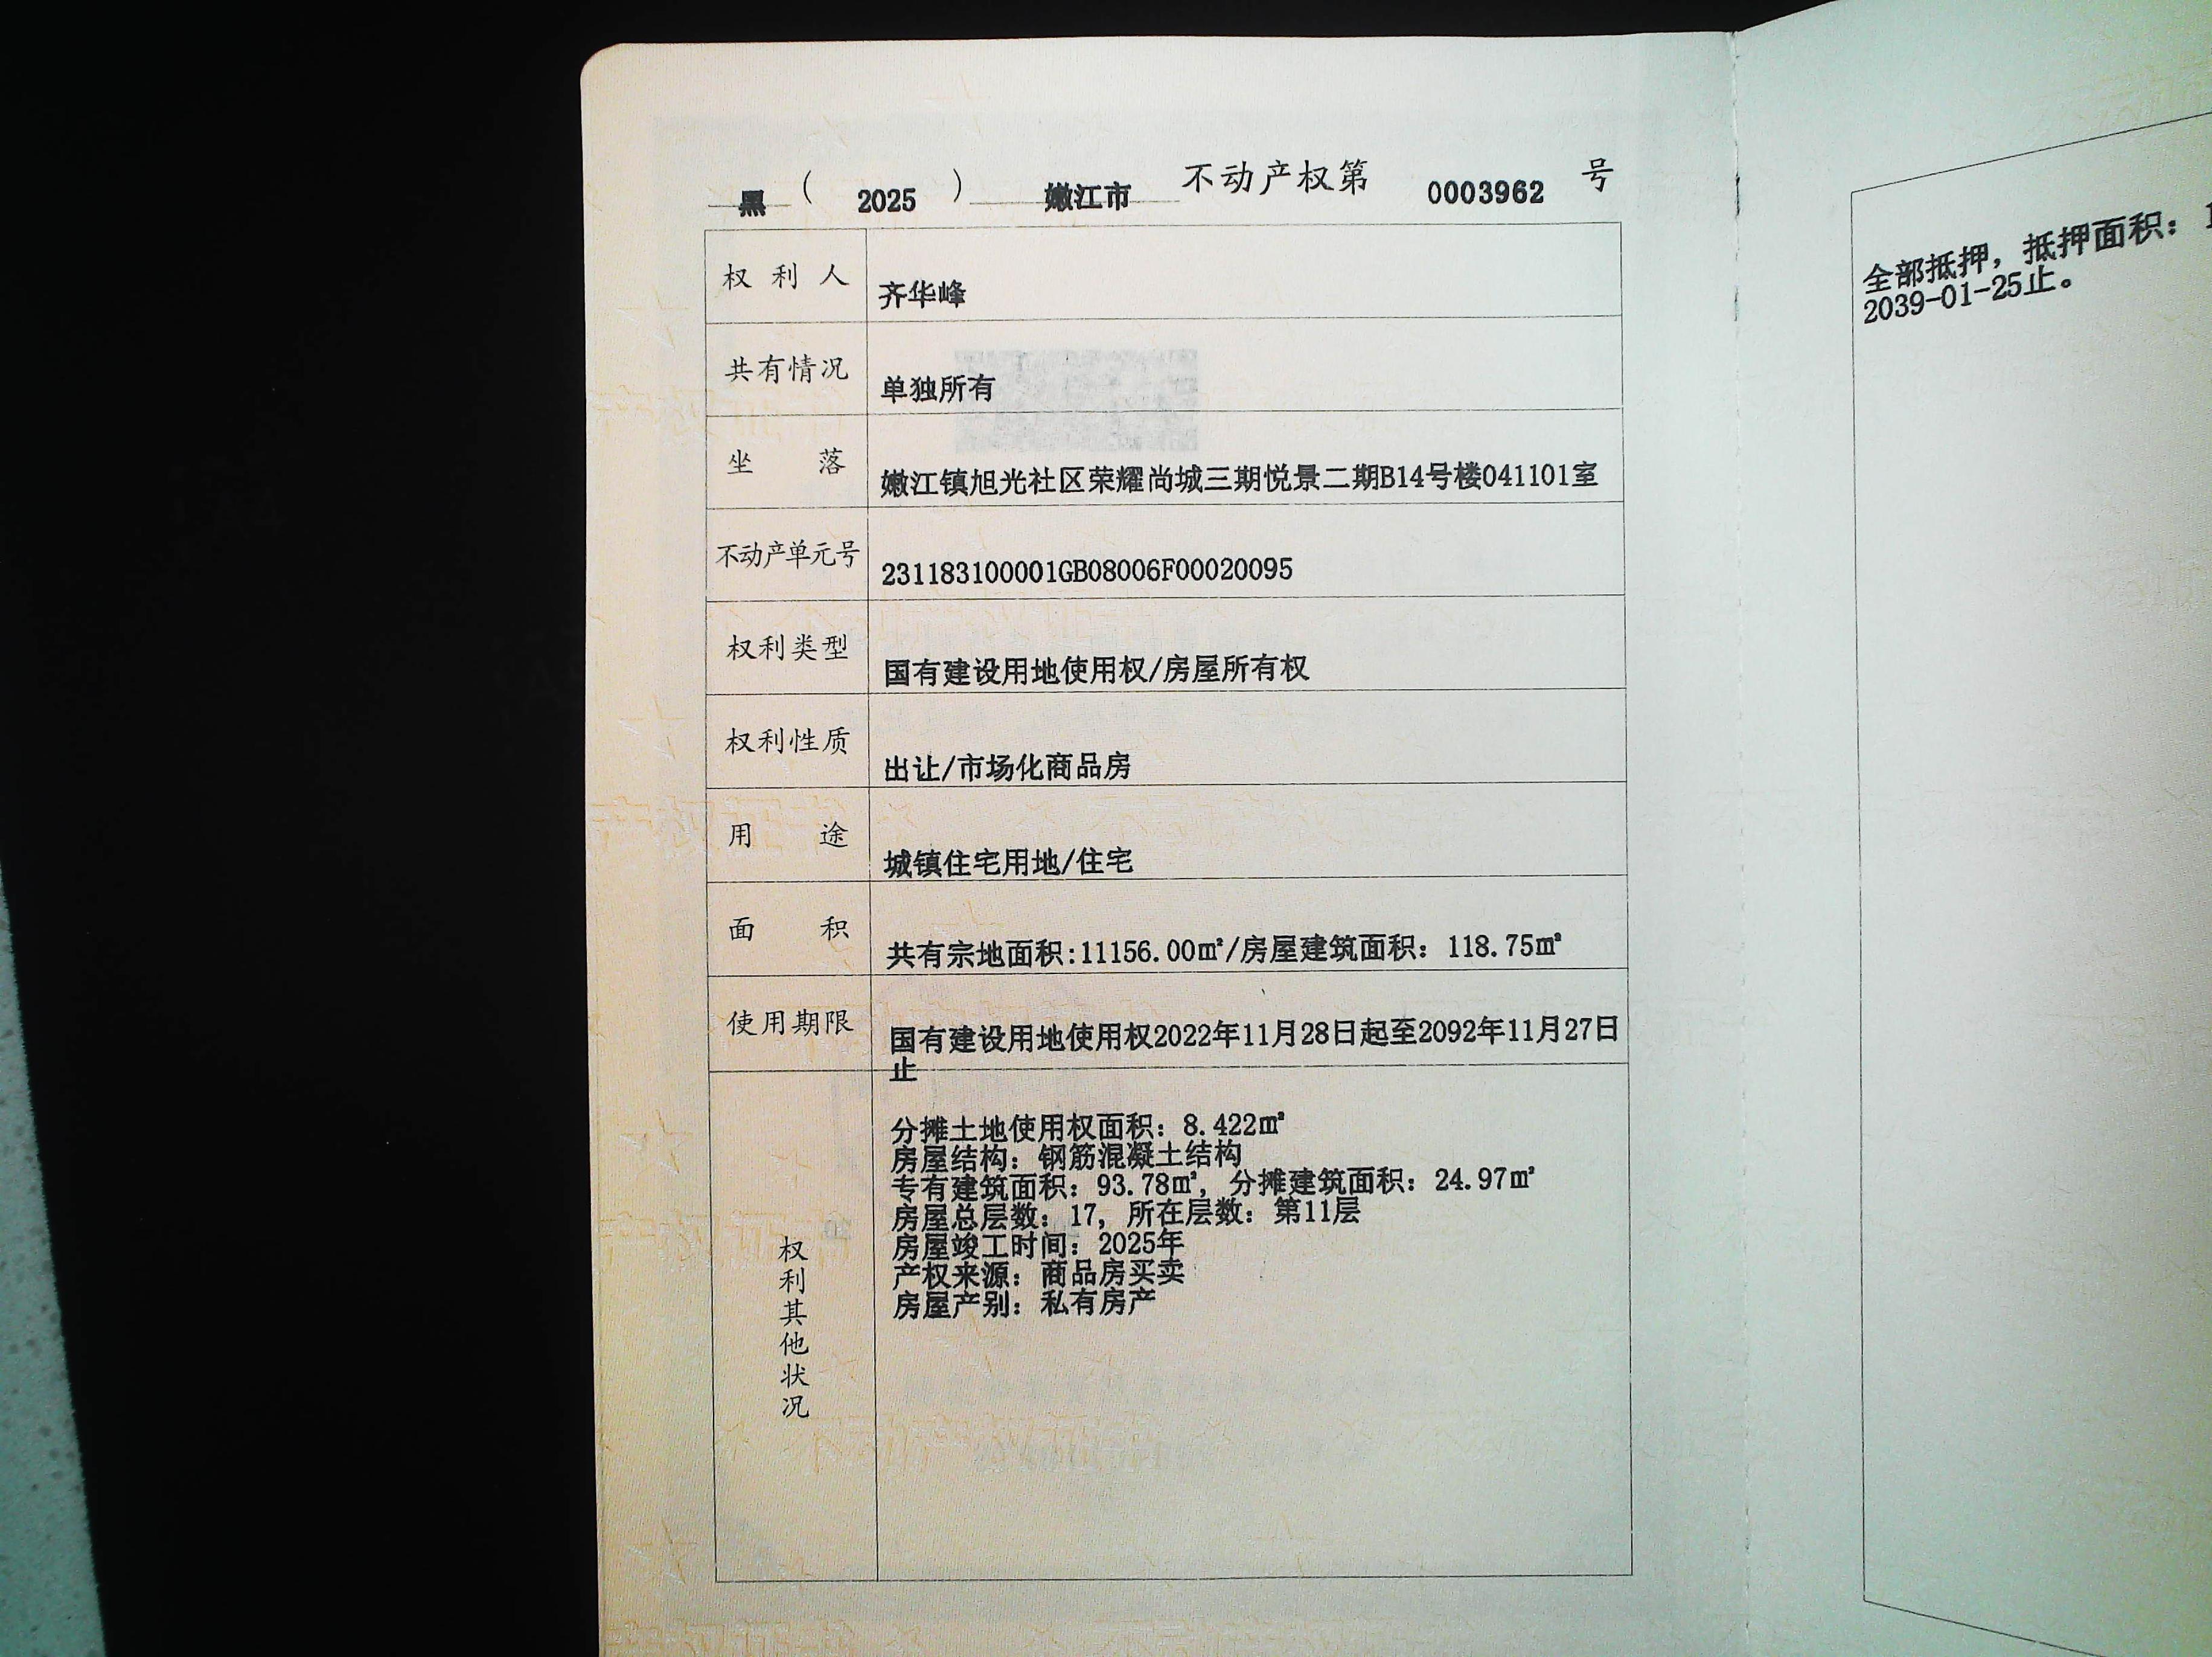 黑（2025）嫩江市不动产权第0003962号
权利人 齐华峰
共有情况 单独所有
坐落 嫩江镇旭光社区荣耀尚城三期悦景二期B14号楼041101室
不动产单元号 231183100001GB08006F00020095
权利类型 国有建设用地使用权/房屋所有权
权利性质 出让/市场化商品房
用途 城镇住宅用地/住宅
面积 共有宗地面积:11156.00㎡/房屋建筑面积：118.75㎡
使用期限 国有建设用地使用权2022年11月28日起至2092年11月27日
止
权利其他状况
分摊土地使用权面积：8.422㎡
房屋结构：钢筋混凝土结构
专有建筑面积：93.78㎡，分摊建筑面积：24.97㎡
房屋总层数：17，所在层数：第11层
房屋竣工时间：2025年
产权来源：商品房买卖
房屋产别：私有房产
全部抵押，抵押面积：
2039-01-25止。